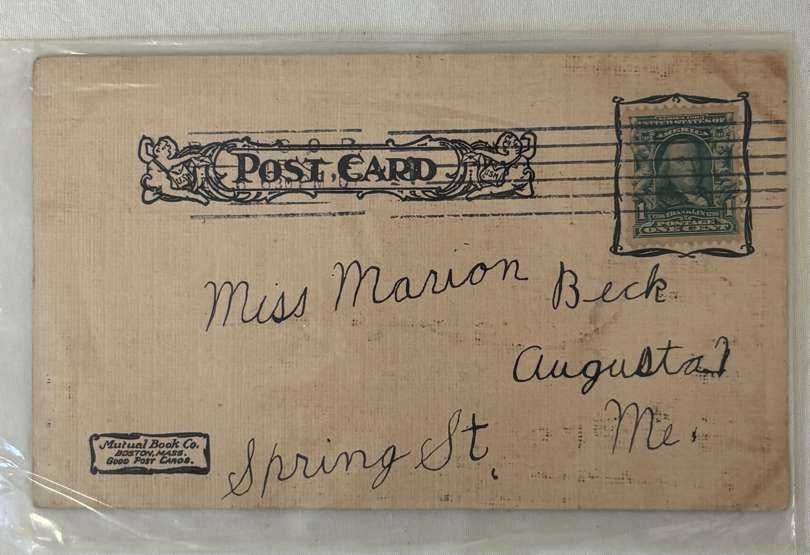 POST CARD
SERIES 1902
UNITED STATES OF
AMERICA
FRANKLIN
POSTAGE
1 ONE CENT 1
Miss Marion Beck
Augusta,
Me.
Spring St.
Mutual Book Co.
BOSTON, MASS.
GOOD POST CARDS.